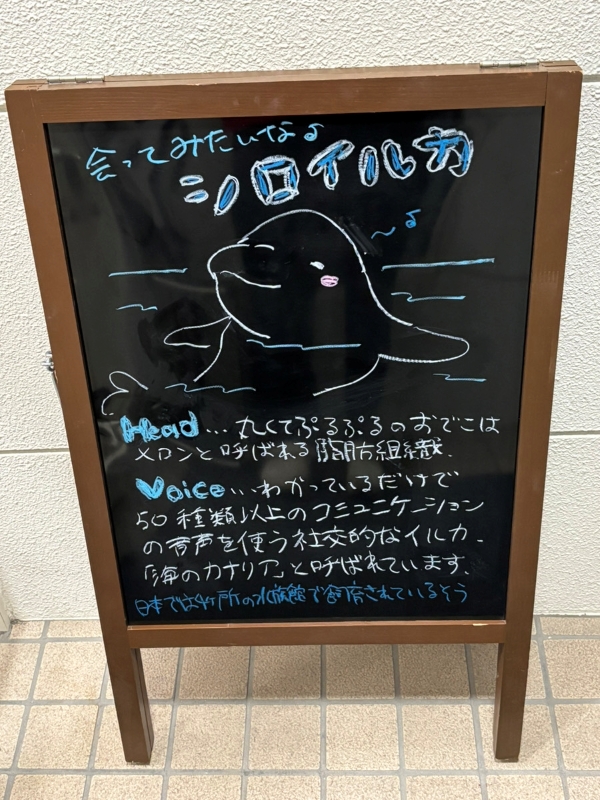 会ってみたいな♪
シロイルカ
～♪
Head…丸くてぷるぷるのおでこは
メロンと呼ばれる脂肪組織.
Voice…わかっているだけで
50種類以上のコミュニケーション
の音声を使う社交的なイルカ.
「海のカナリア」と呼ばれています.
日本では4ヶ所の水族館で飼育されているそう